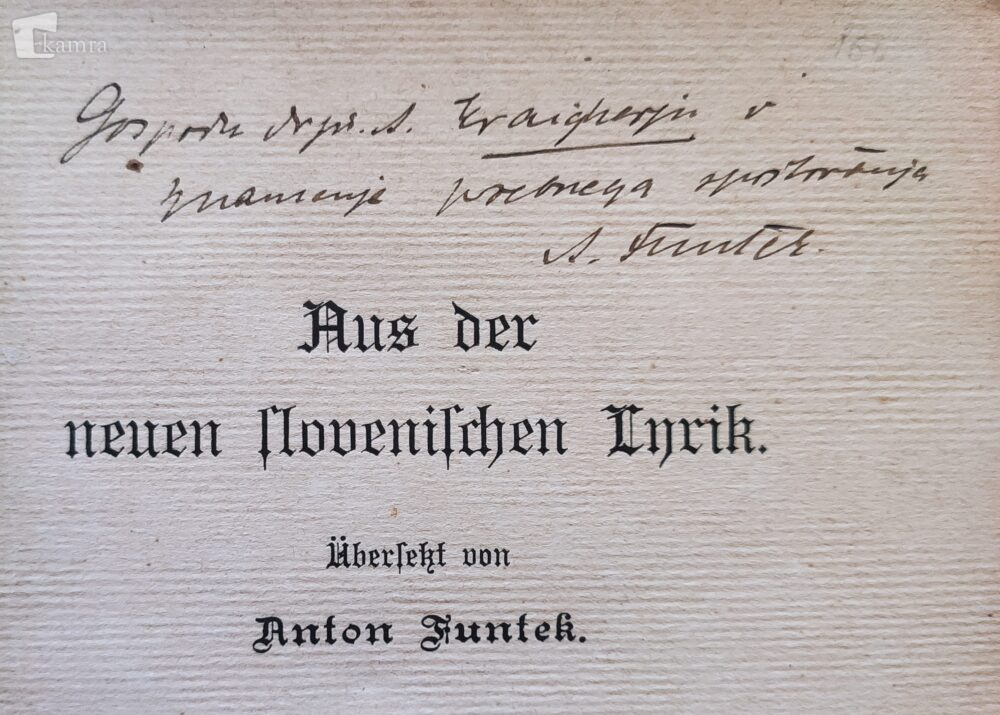 kamra
Gospodu A. Kraigherju v
znamenje posebnega spoštovanja
A. Funtek.
Aus der
neuen ſloveniſchen Lyrik.
Überſetzt von
Anton Funtek.